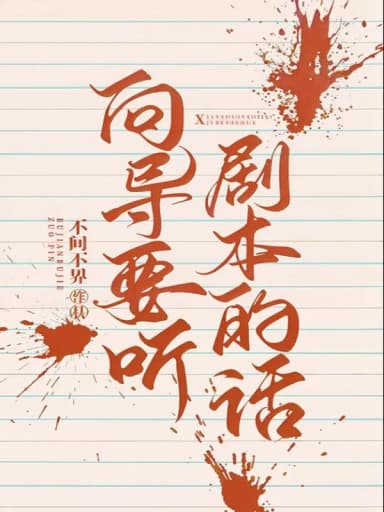 向导要听
剧本的话
不间不界
BUJIANBUJIE
ZUO PIN